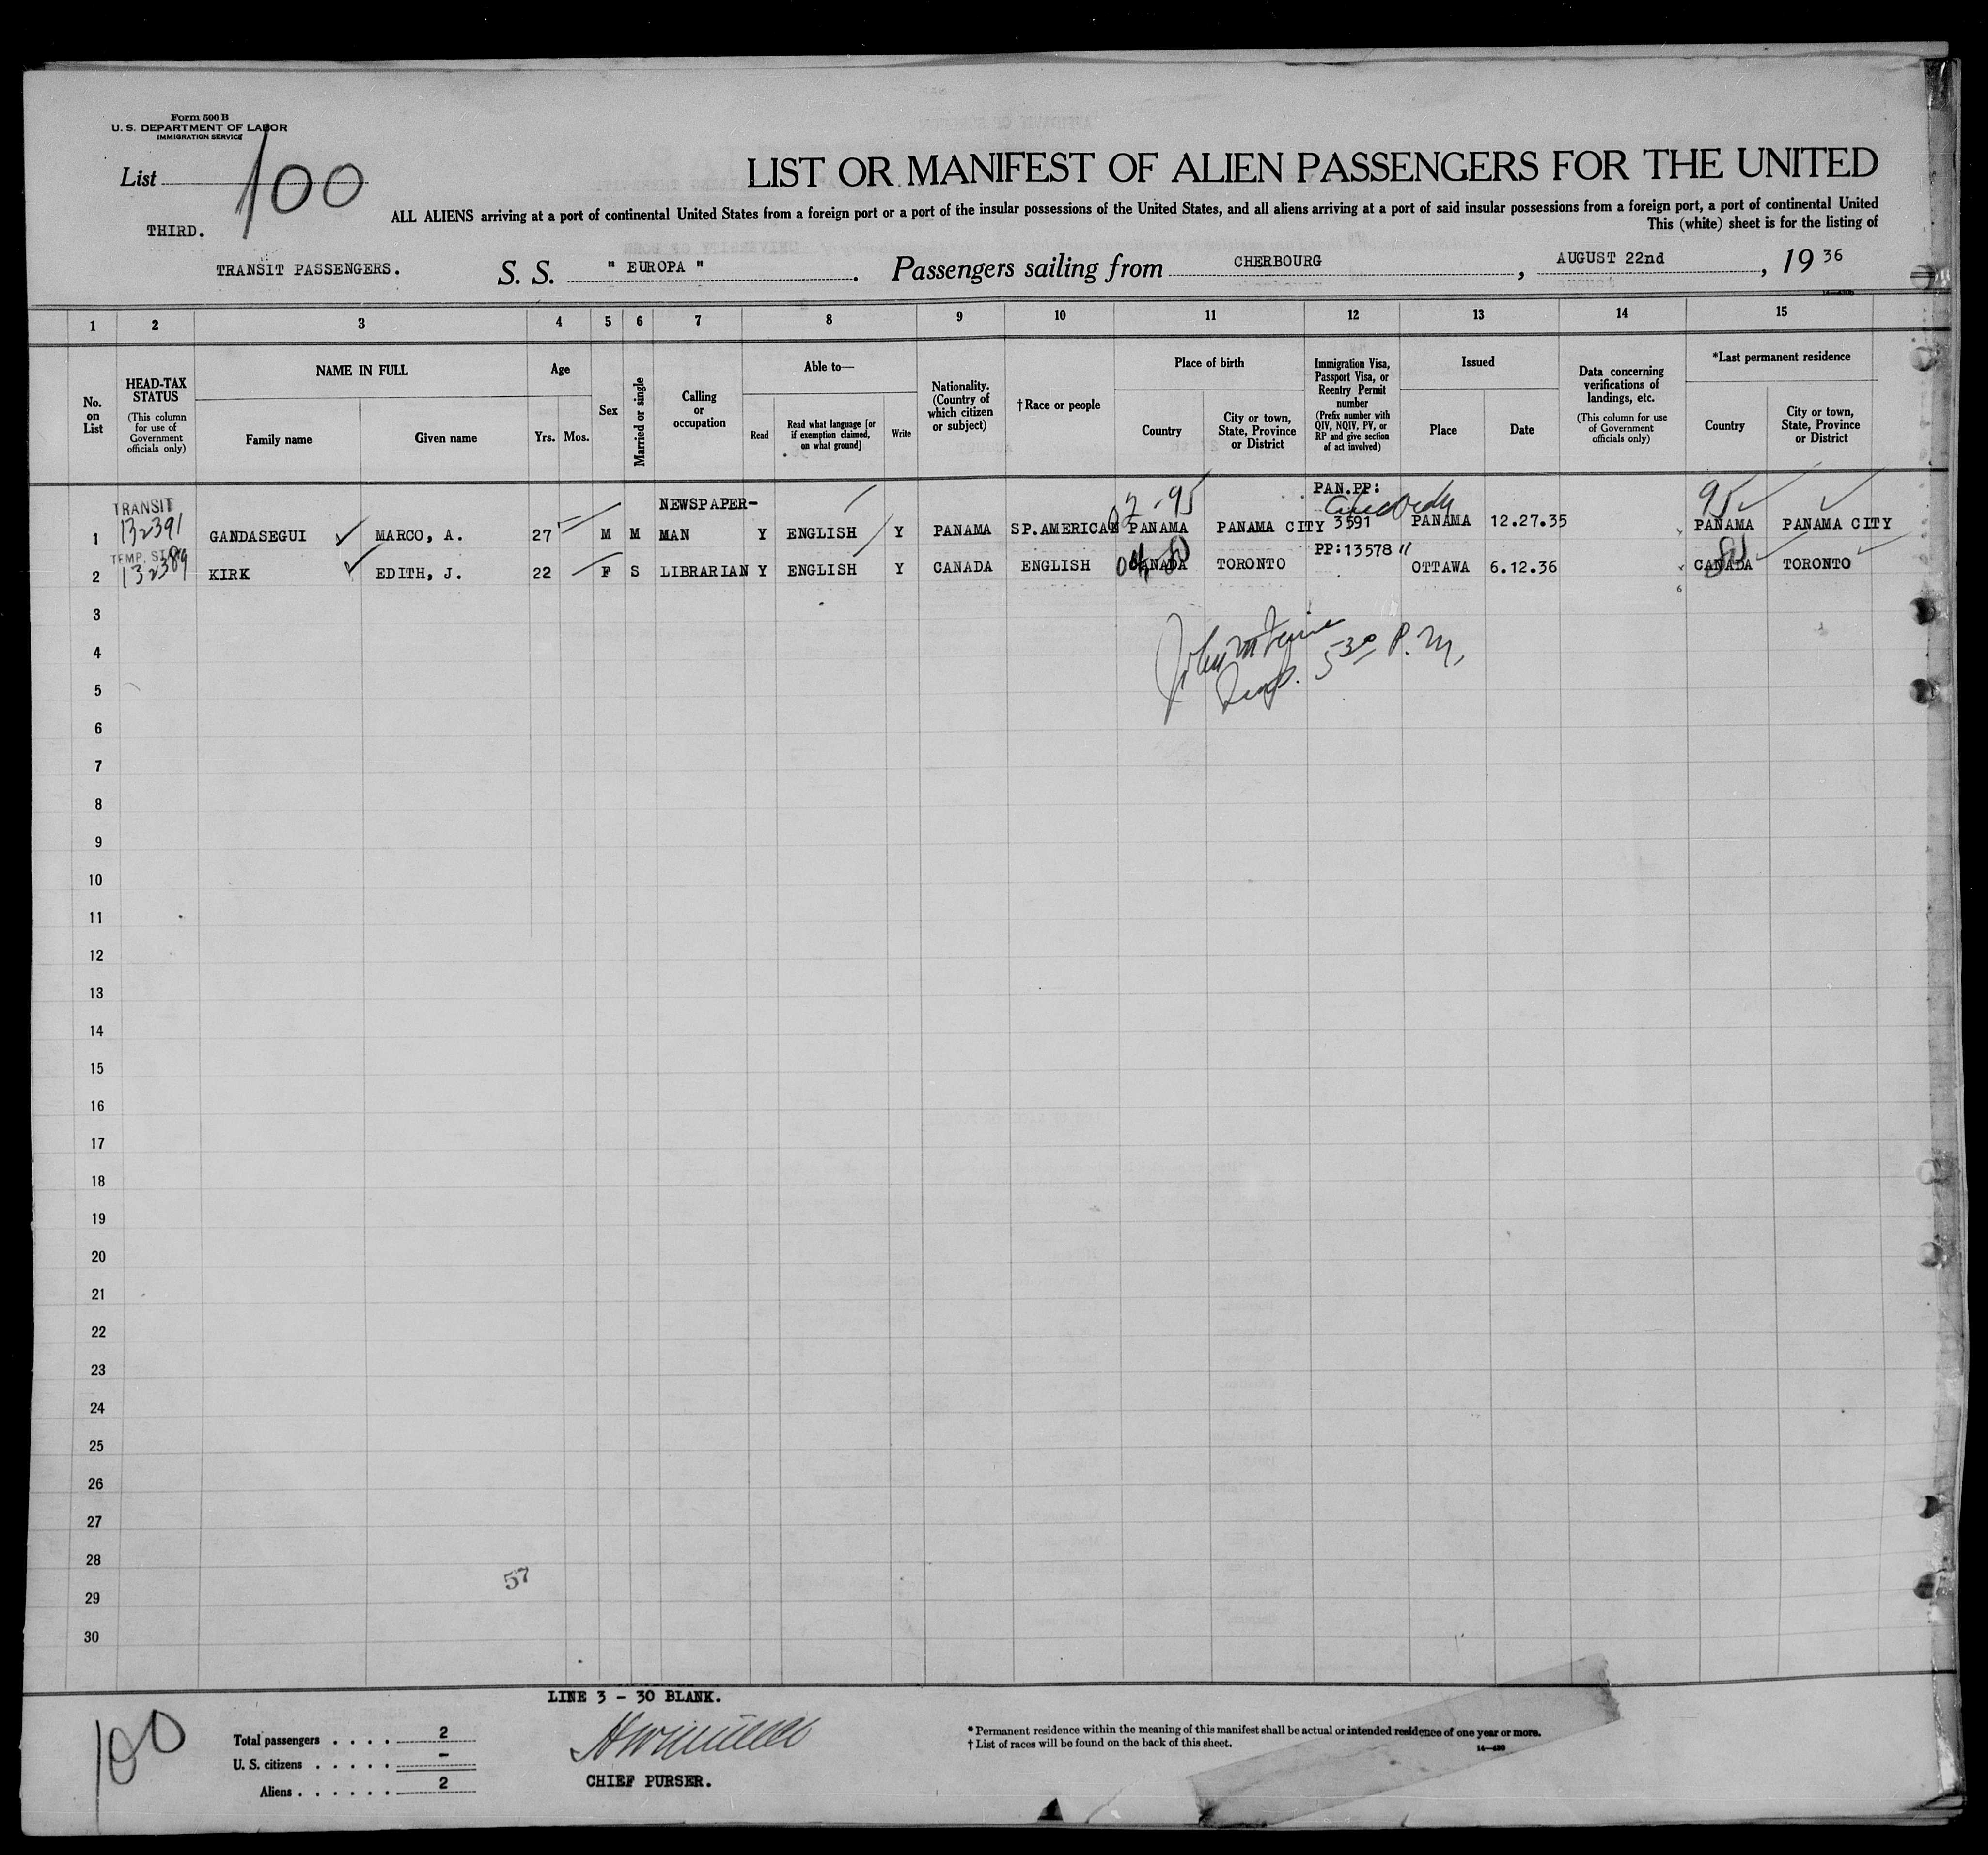 Form 500 B
U. S. DEPARTMENT OF LABOR
IMMIGRATION SERVICE
List 100
LIST OR MANIFEST OF ALIEN PASSENGERS FOR THE UNITED
ALL ALIENS arriving at a port of continental United States from a foreign port or a port of the insular possessions of the United States, and all aliens arriving at a port of said insular possessions from a foreign port, a port of continental United
THIRD.
This (white) sheet is for the listing of
TRANSIT PASSENGERS. S. S. " EUROPA ". Passengers sailing from CHERBOURG, AUGUST 22nd, 19 36
1 2 3 4 5 6 7 8 9 10 11 12 13 14 15
No. on List
HEAD-TAX STATUS
(This column for use of Government officials only)
NAME IN FULL
Family name
Given name
Age
Yrs. Mos.
Sex
Married or single
Calling or occupation
Able to—
Read
Read what language [or if exemption claimed, on what ground]
Write
Nationality. (Country of which citizen or subject)
† Race or people
Place of birth
Country
City or town, State, Province or District
Immigration Visa, Passport Visa, or Reentry Permit number
(Prefix number with QIV, NQIV, PV, or RP and give section of act involved)
Issued
Place
Date
Data concerning verifications of landings, etc.
(This column for use of Government officials only)
*Last permanent residence
Country
City or town, State, Province or District
TRANSIT NEWSPAPER- 02-95 PAN.PP: 95
1 132391 GANDASEGUI MARCO, A. 27 M M MAN Y ENGLISH Y PANAMA SP.AMERICAN PANAMA PANAMA CITY 3591 PANAMA 12.27.35 PANAMA PANAMA CITY
PP:13578
2 132389 KIRK EDITH, J. 22 F S LIBRARIAN Y ENGLISH Y CANADA ENGLISH CANADA TORONTO OTTAWA 6.12.36 CANADA TORONTO
3
4
5 30 P. M.
5
6
7
8
9
10
11
12
13
14
15
16
17
18
19
20
21
22
23
24
25
26
27
28
57
29
30
LINE 3 - 30 BLANK.
100
Total passengers . . . . 2
U. S. citizens . . . . . -
Aliens . . . . . . 2
CHIEF PURSER.
* Permanent residence within the meaning of this manifest shall be actual or intended residence of one year or more.
† List of races will be found on the back of this sheet.
14—430